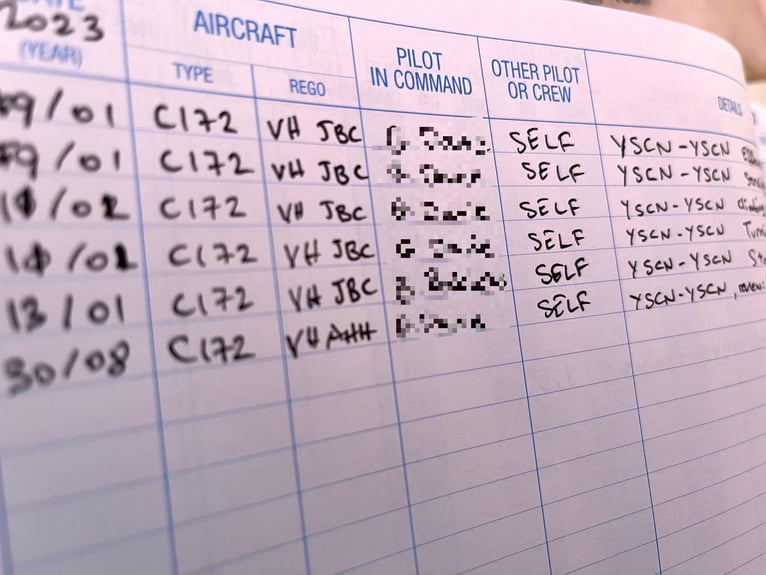 DATE
2023
(YEAR)
AIRCRAFT
TYPE
REGO
PILOT
IN COMMAND
OTHER PILOT
OR CREW
DETAILS
09/01 C172 VH JBC SELF YSCN-YSCN
09/01 C172 VH JBC SELF YSCN-YSCN
C172 VH JBC SELF YSCN-YSCN
C172 VH JBC SELF YSCN-YSCN
13/01 C172 VH JBC SELF YSCN-YSCN
30/08 C172 SELF YSCN-YSCN,